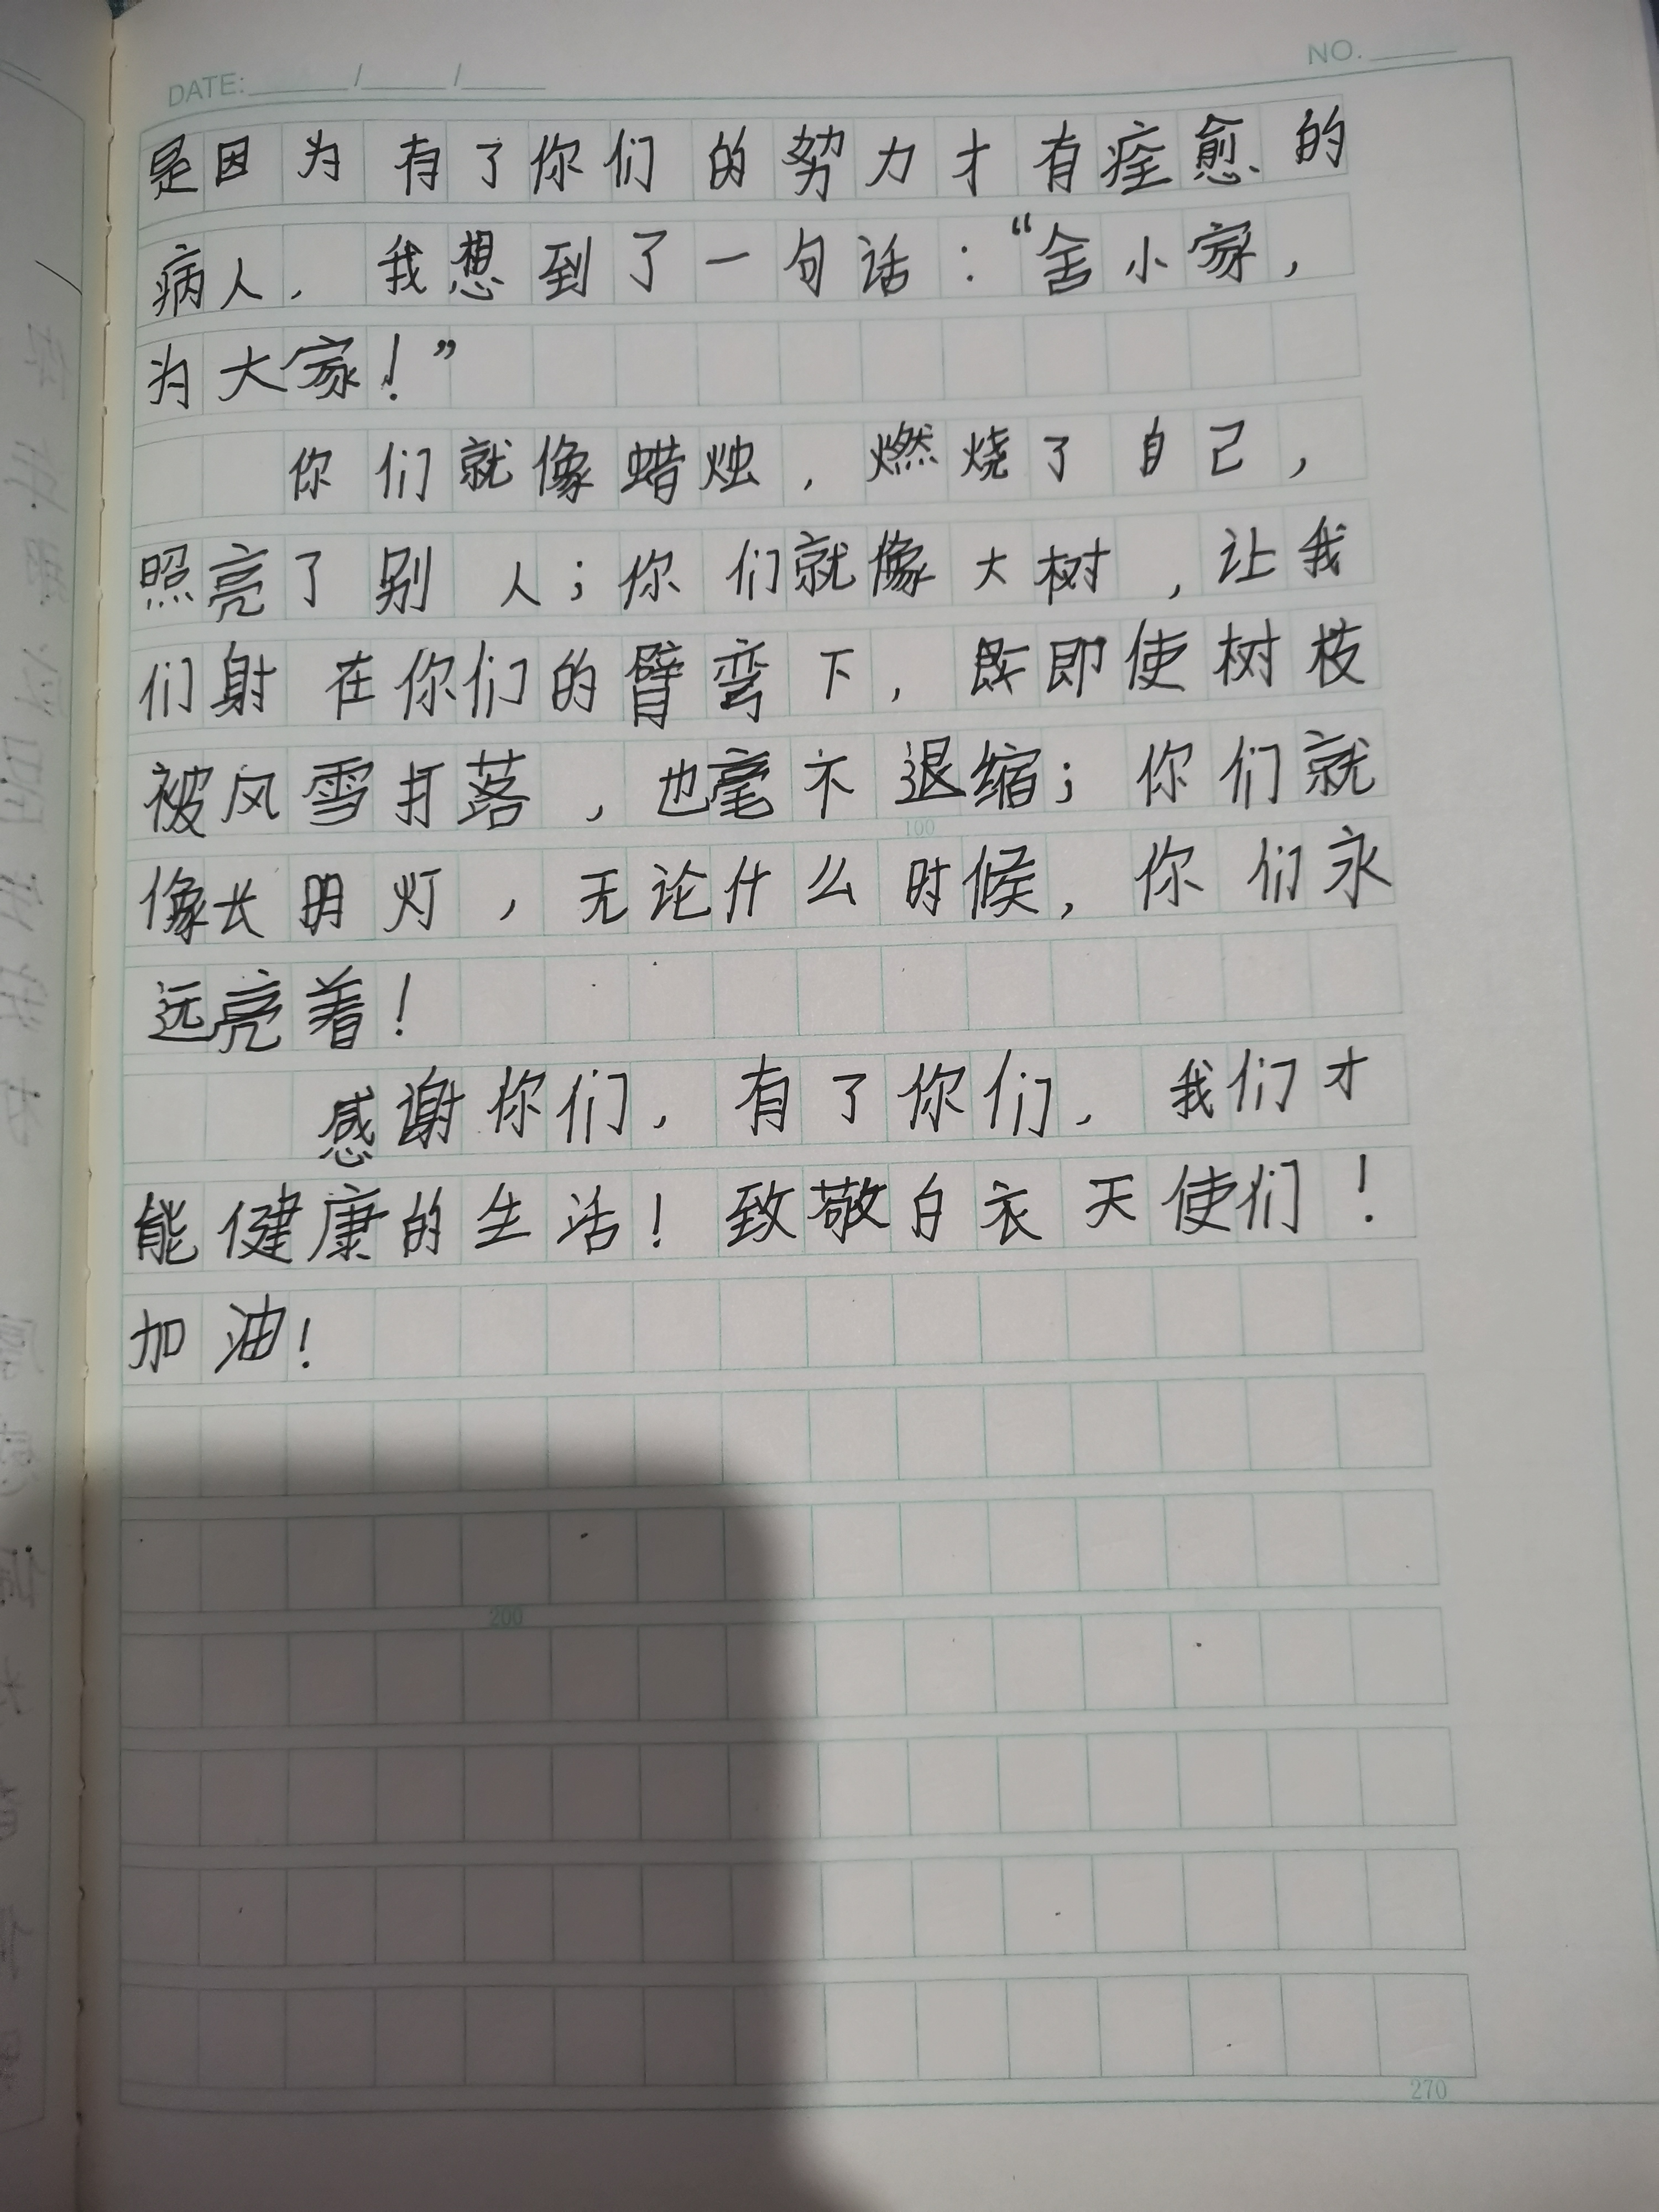 DATE: / / NO.
是因为有了你们的努力才有痊愈的
病人，我想到了一句话：“舍小家，
为大家！”
你们就像蜡烛，燃烧了自己，
照亮了别人；你们就像大树，让我
们射在你们的臂弯下，既即使树枝
被风雪打落，也毫不退缩；你们就
100
像长明灯，无论什么时候，你们永
远亮着！
感谢你们，有了你们，我们才
能健康的生活！致敬白衣天使们！
加油！
200
270